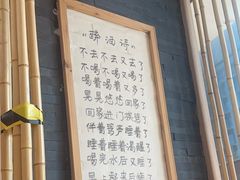 "醉酒诗"
不去不去又去了
不喝不喝又喝了
喝着喝着又多了
晃晃悠悠回家了
回家进门挨骂了
伴着骂声睡着了
睡着睡着渴醒了
喝完水后又睡了
早上起来后悔了